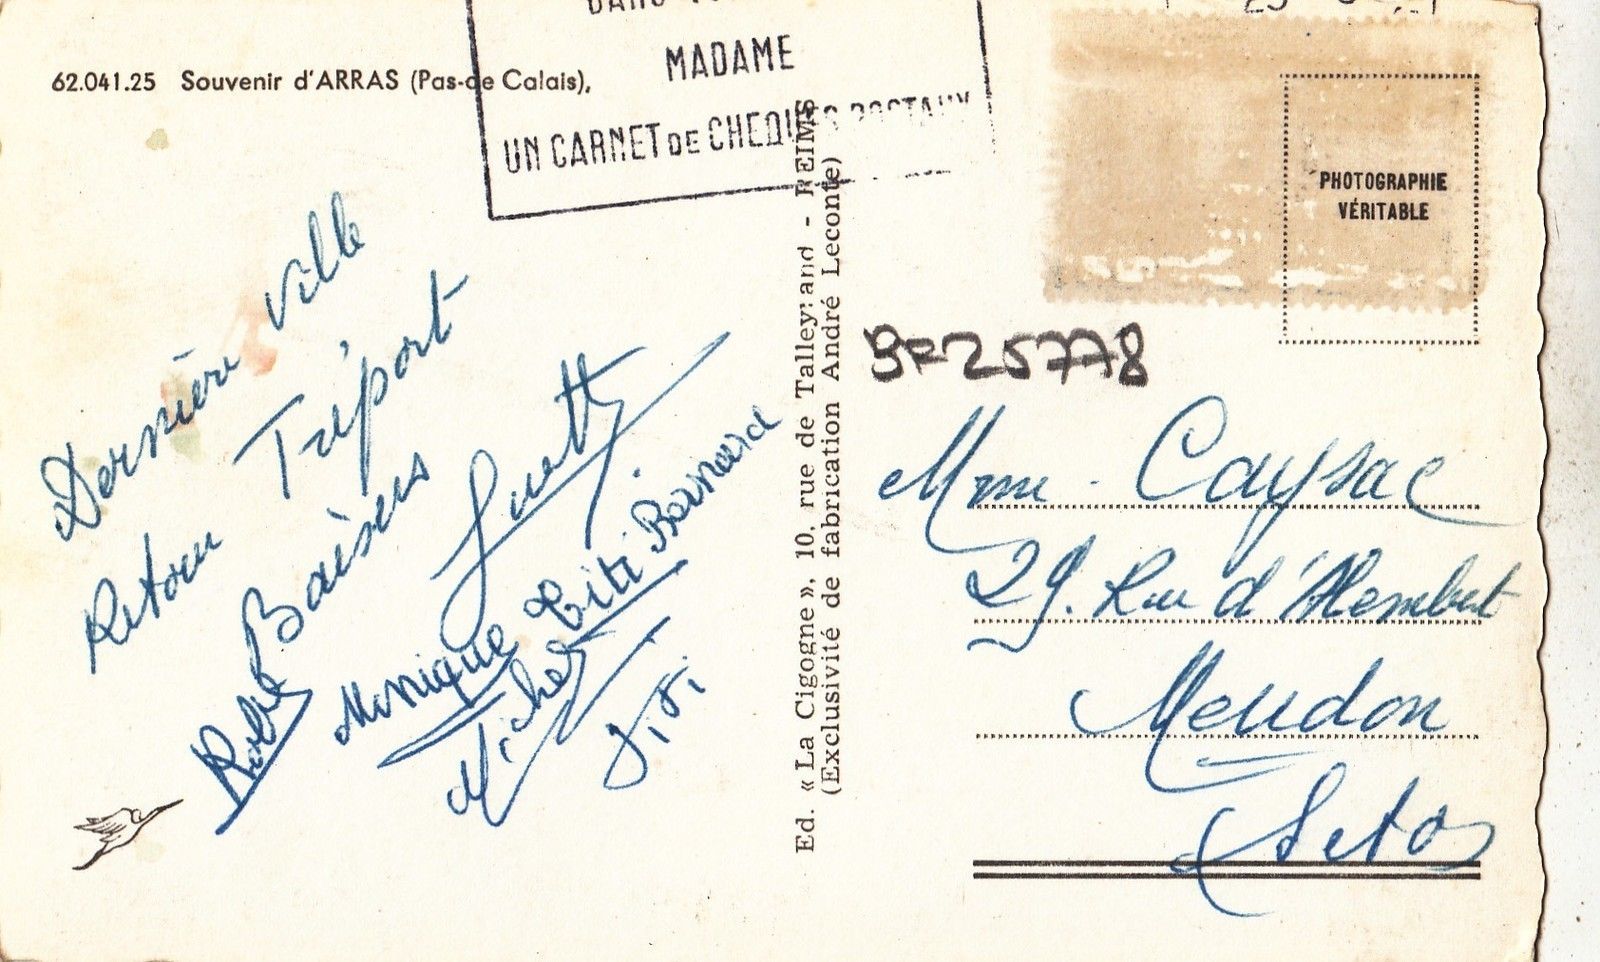 MADAME
UN CARNET DE CHEQUES POSTAUX
62.041.25 Souvenir d'ARRAS (Pas-de Calais),
PHOTOGRAPHIE
VÉRITABLE
Dernière ville
Retour Tréport
Baisers
Monique Titi Bernard
Michel
Titi
Ed. « La Cigogne », 10, rue de Talleyrand - REIMS
(Exclusivité de fabrication André Leconte)
Mme. Caysac
29. Rue d'
Meudon